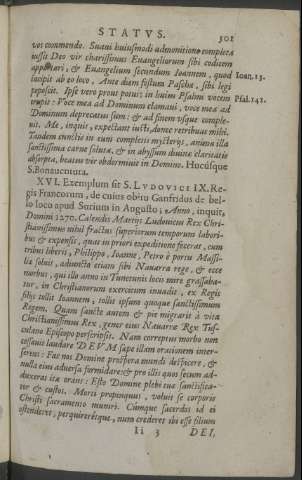 STATVS. 501
vos commendo. Suavi huiusmodi admonitione completa
iussit Deo vir charissimus Euangeliorum sibi codicem
apportari, & Euangelium secundum Ioannem, quod Ioan. 13.
incipit ab eo loco, Ante diem festum Paschæ, sibi legi
poposcit. Ipse vero prout potuit in huius Psalmi vocem Psal. 141.
erupit: Voce mea ad Dominum clamavi, voce mea ad
Dominum deprecatus sum: & ad finem usque comple-
vit. Me, inquit, expectant iusti, donec retribuas mihi.
Tandem cunctis in eum completis mysterijs, anima illa
sanctissima carne soluta, & in abyssum divinæ claritatis
absorpta, beatus vir obdormivit in Domino. Hucusque
S. Bonauentura.
XVI. Exemplum sit S. LVDOVICI IX. Re-
gis Francorum, de cuius obitu Ganfridus de bel-
lo loco apud Surium in Augusto; Anno, inquit,
Domini 1270. Calendis Martijs Ludovicus Rex Chri-
stianissimus nihil fractus superiorum temporum labori-
bus & expensis, quas in priori expeditione fecerat, cum
tribus liberis, Philippo, Ioanne, Petro è portu Massi-
liæ solvit, adiuncta etiam sibi Navarra rege, & ecce
morbus, qui illo anno in Tunetanis locis mire grassaba-
tur, in Christianorum exercitum invadit, ex Regis
filijs tollit Ioannem; tollit ipsum quoque sanctissimum
Regem. Quam sancte autem & pie migrarit à vita
Christianissimus Rex, gener eius Navarræ Rex Tus-
culano Episcopo perscripsit. Nam correptus morbo non
cessavit laudare DEVM sæpe illam orationem inter-
serens: Fac nos Domine prospera mundi despicere, &
nulla eius adversa formidare: & pro illis quos secum ad-
duxerat ita orans: Esto Domine plebi tuæ sanctifica-
tor & custos. Morti propinquus, voluit se corporis
Christi sacramento muniri. Cumque sacerdos id ei
ostenderet, perquireretque, num crederet ibi esse filium
Ii 3 DEI,